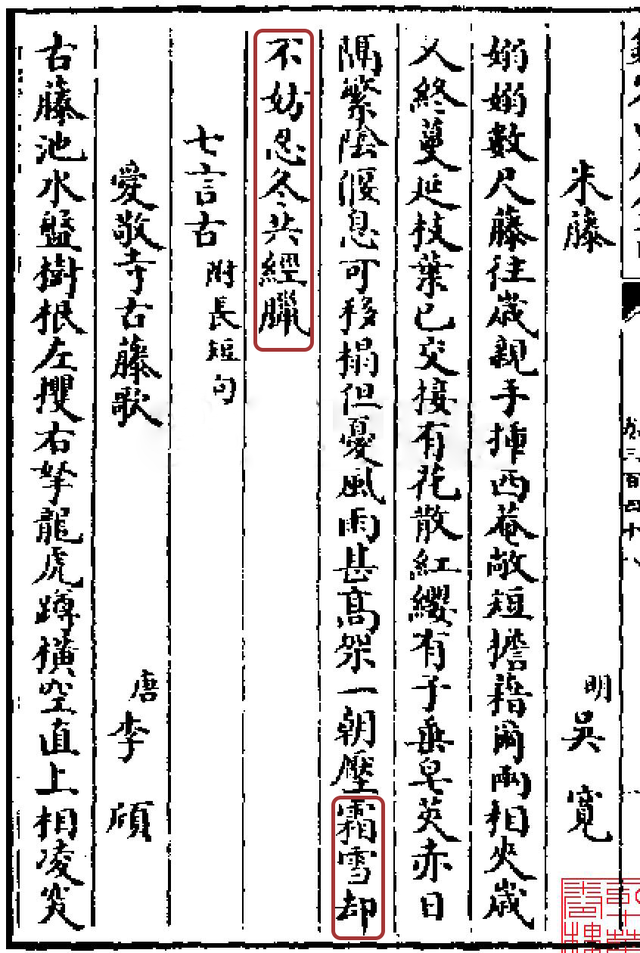 三百四十八
朱藤 明 吳寬
嫋嫋數尺藤往歲親手揷西菴敞短檐藉爾兩相夾歲
乆終蔓延枝葉已交接有花散紅纓有子垂皂莢赤日
隔繁陰偃息可移榻但憂風雨甚髙架一朝壓霜雪却
不妨忍冬共經臘
七言古 附長短句
愛敬寺古藤歌 唐 李頎
古藤池水盤樹根左攫右拏龍虎蹲橫空直上相凌突